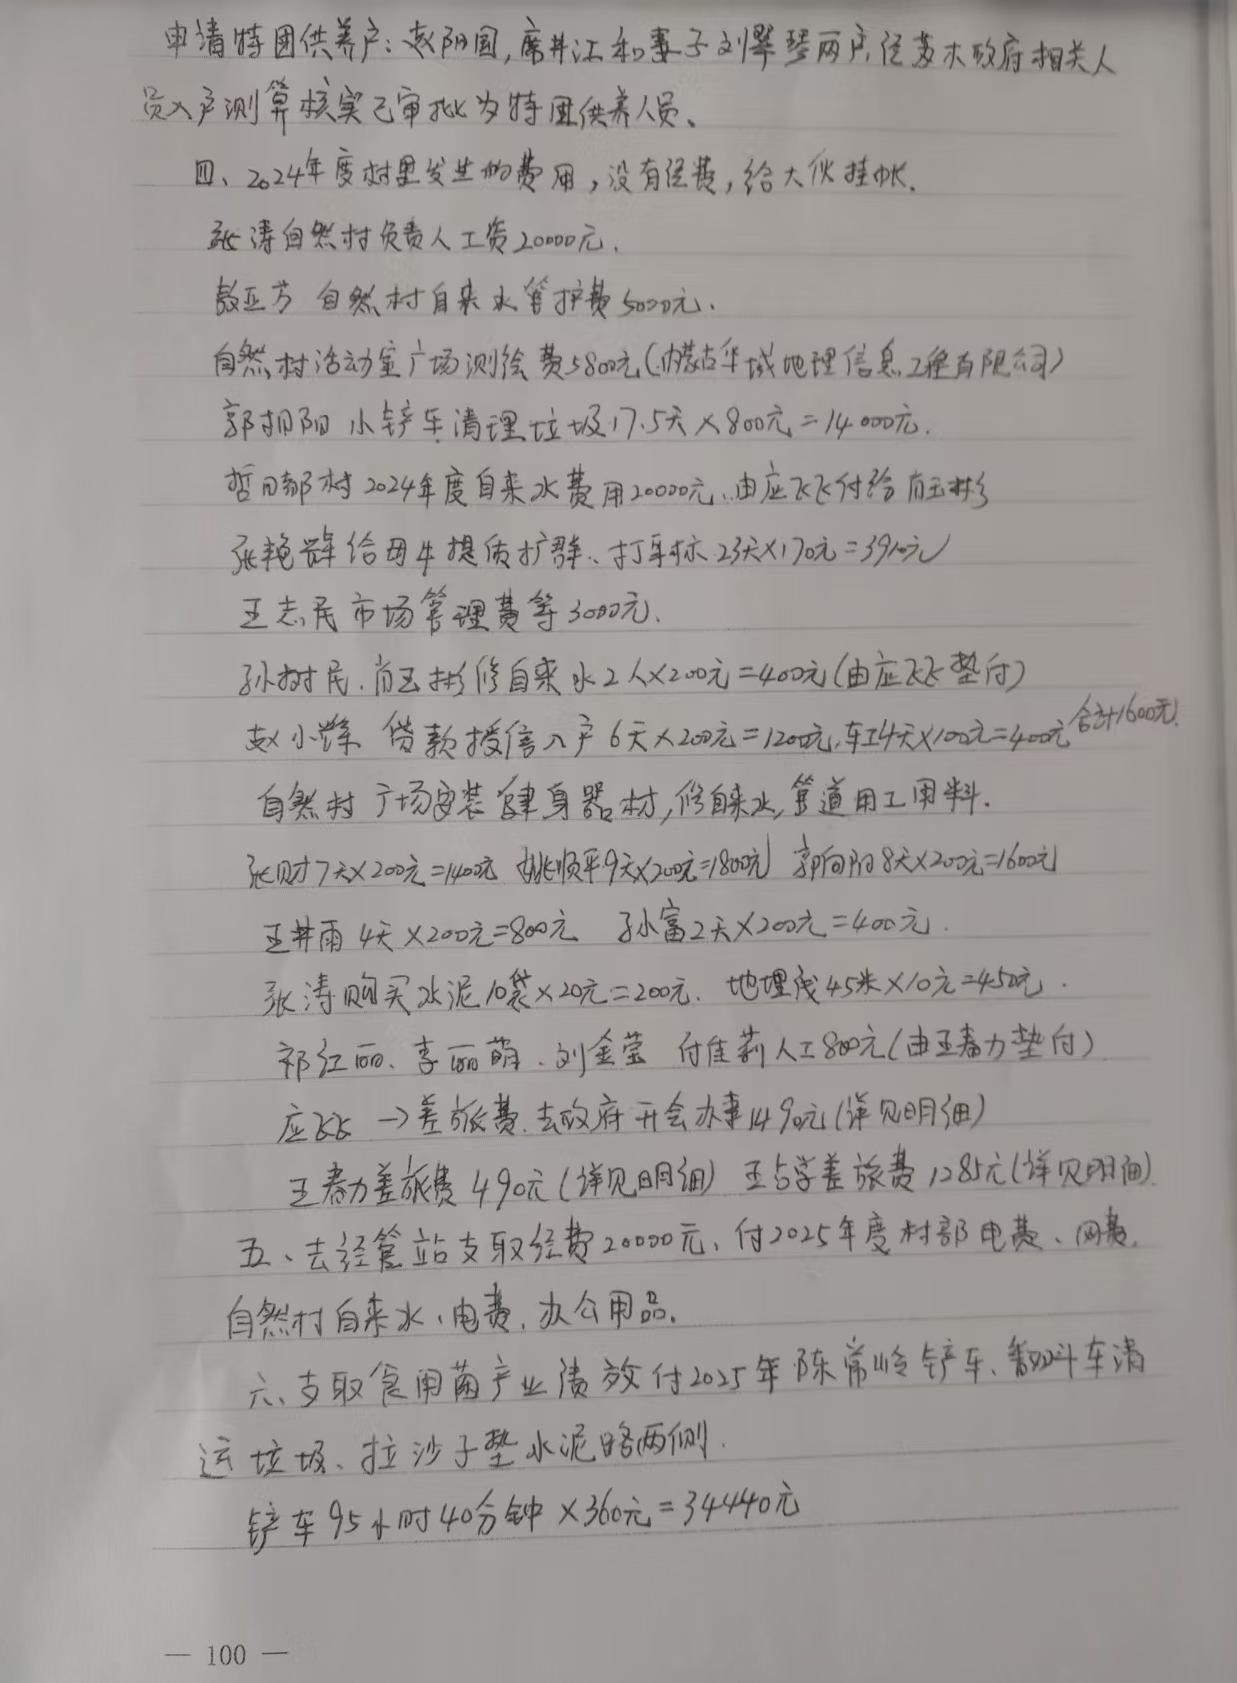 申请特困供养户：赵阳国，席井江和妻子刘翠琴两户，经苏木政府相关人
员入户测算核实已审批为特困供养人员。
四、2024年度村里发生的费用，没有经费，给大伙挂帐。
张涛自然村负责人工资20000元．
敖亚芳 自然村自来水管护费5000元．
自然村活动室广场测绘费5800元（内蒙古华域地理信息工程有限公司）
郭朝阳 小铲车清理垃圾17.5天×800元＝14000元．
哲日郝村2024年度自来水费用20000元、由应飞飞付给肖玉彬
张艳辉给母牛提质扩群、打耳标 23天×170元＝3910元
王志民市场管理费等3000元．
孙树民．肖玉彬修自来水2人×200元＝400元（由应飞飞垫付）
赵小辉 贷款授信入户6天×200元＝1200元，车工4天×100元＝400元 合计1600元．
自然村广场安装健身器材，修自来水，管道用工用料．
张财7天×200元＝1400元 姚顺平9天×200元＝1800元 郭向阳8天×200元＝1600元
王井雨4天×200元＝800元 孙富2天×200元＝400元．
张涛购买水泥10袋×20元＝200元． 地埋线45米×10元＝450元．
祁红丽、李丽萌、刘金莹 付佳莉人工800元（由王春力垫付）
应飞飞→差旅费．去政府开会办事1490元（详见明细）
王春力差旅费490元（详见明细） 王占学差旅费1285元（详见明细）
五、去经管站支取经费20000元，付2025年度村部电费、网费，
自然村自来水、电费，办公用品．
六、支取食用菌产业绩效付2025年陈常岭铲车、翻斗车清
运垃圾、拉沙子垫水泥路两侧．
铲车95小时40分钟×360元＝34440元
— 100 —